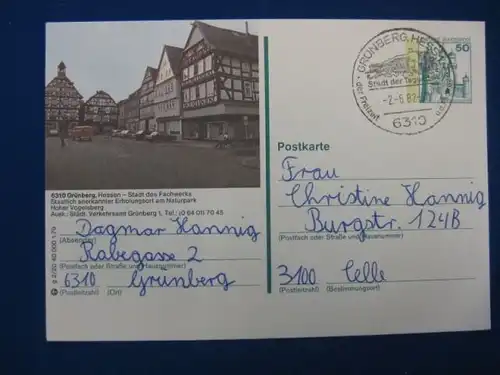 GRÜNBERG, HESSEN
Stadt der Tagungen
-2.-6.82
der Freizeit
6310
DEUTSCHE BUNDESPOST
50
6310 Grünberg, Hessen – Stadt des Fachwerks
Staatlich anerkannter Erholungsort am Naturpark
Hoher Vogelsberg
Ausk.: Städt. Verkehrsamt Grünberg 1, Tel.: (0 64 01) 70 45
Postkarte
Frau
Christine Hannig
Burgstr. 124B
(Postfach oder Straße und Hausnummer)
3100 Celle
(Postleitzahl) (Bestimmungsort)
Dagmar Hannig
(Absender)
Rabegasse 2
(Postfach oder Straße und Hausnummer)
6310 Grünberg
(Postleitzahl) (Ort)